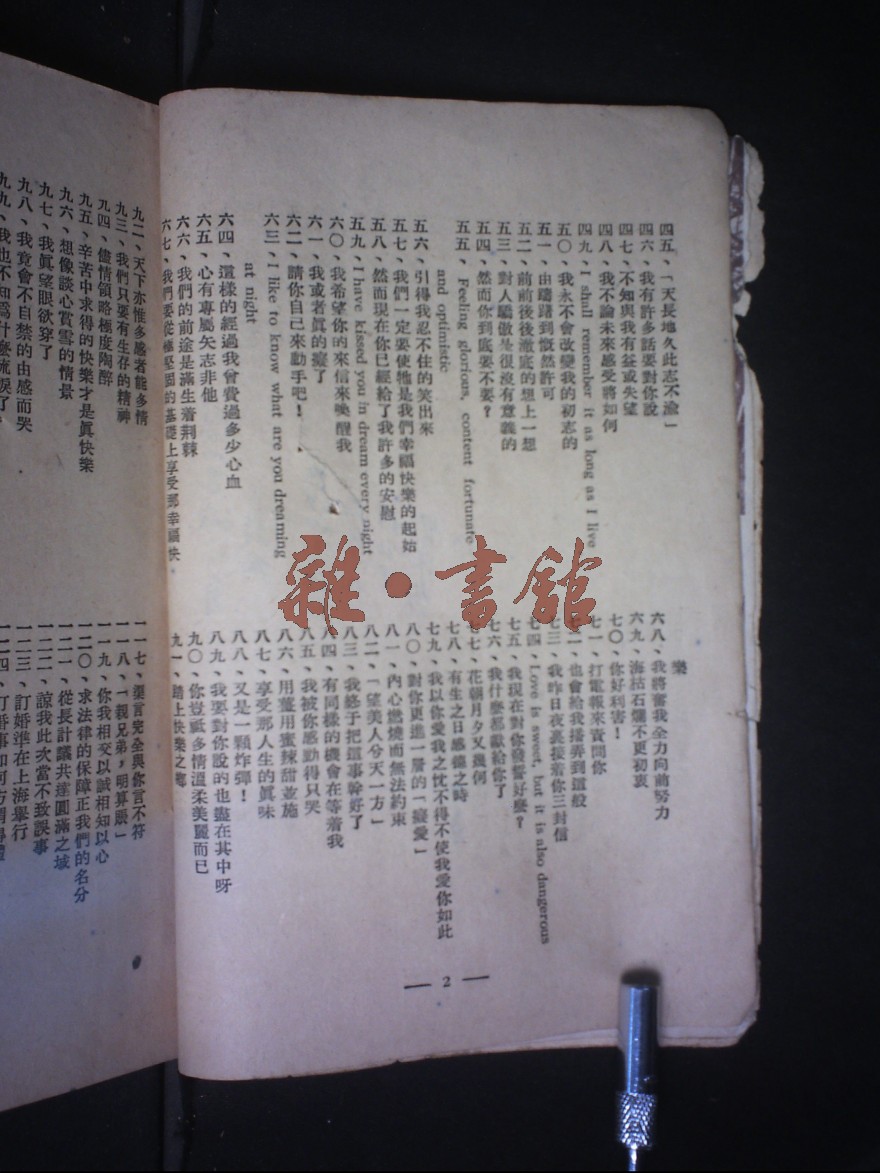 四五、「天長地久此志不渝」
四六、我有許多話要對你說
四七、不知與我有益或失望
四八、我不論未來感受將如何
四九、I shall remember it as long as I live
五〇、我永不會改變我的初志的
五一、由躊躇到慨然許可
五二、前前後後澈底的想上一想
五三、對人驕傲是很沒有意義的
五四、然而你到底要不要？
五五、Feeling glorious, content fortunate
and optimistic
五六、引得我忍不住的笑出來
五七、我們一定要使牠是我們幸福快樂的起始
五八、然而現在你已經給了我許多的安慰
五九、I have kissed you in dream every night
六〇、我希望你的來信來喚醒我
六一、我或者真的癡了
六二、請你自己來動手吧！
六三、I like to know what are you dreaming
at night
六四、這樣的經過我曾費過多少心血
六五、心有專屬矢志非他
六六、我們的前途是滿生着荆棘
六七、我們要從極堅固的基礎上享受那幸福快
樂
六八、我將奮我全力向前努力
六九、海枯石爛不更初衷
七〇、你好利害！
七一、打電報來責問你
七二、也會給我播弄到這般
七三、我昨日夜裏接着你三封信
七四、Love is sweet, but it is also dangerous
七五、我現在對你發誓好麼？
七六、我什麼都獻給你了
七七、花朝月夕又幾何
七八、有生之日感德之時
七九、我以你愛我之忱不得不使我愛你如此
八〇、對你更進一層的「癡愛」
八一、內心燃燒而無法約束
八二、「望美人兮天一方」
八三、我終于把這事幹好了
八四、有同樣的機會在等着我
八五、我被你感動得只哭
八六、用薑用蜜辣甜並施
八七、享受那人生的眞味
八八、又是一顆炸彈！
八九、我要對你說的也盡在其中呀
九〇、你豈祗多情溫柔美麗而已
九一、踏上快樂之鄉
— 2 —
九二、天下亦惟多感者能多情
九三、我們只要有生存的精神
九四、儘情領略極度陶醉
九五、辛苦中求得的快樂才是眞快樂
九六、想像談心賞雪的情景
九七、我眞望眼欲穿了
九八、我竟會不自禁的由感而哭
九九、我也不知爲什麼流淚了
一一七、渠言完全與你言不符
一一八、「親兄弟，明算賬」
一一九、你我相交以誠相知以心
一二〇、求法律的保障正我們的名分
一二一、從長計議共達圓滿之域
一二二、諒我此次當不致誤事
一二三、訂婚準在上海舉行
一二四、訂婚事如何方
雜·書館